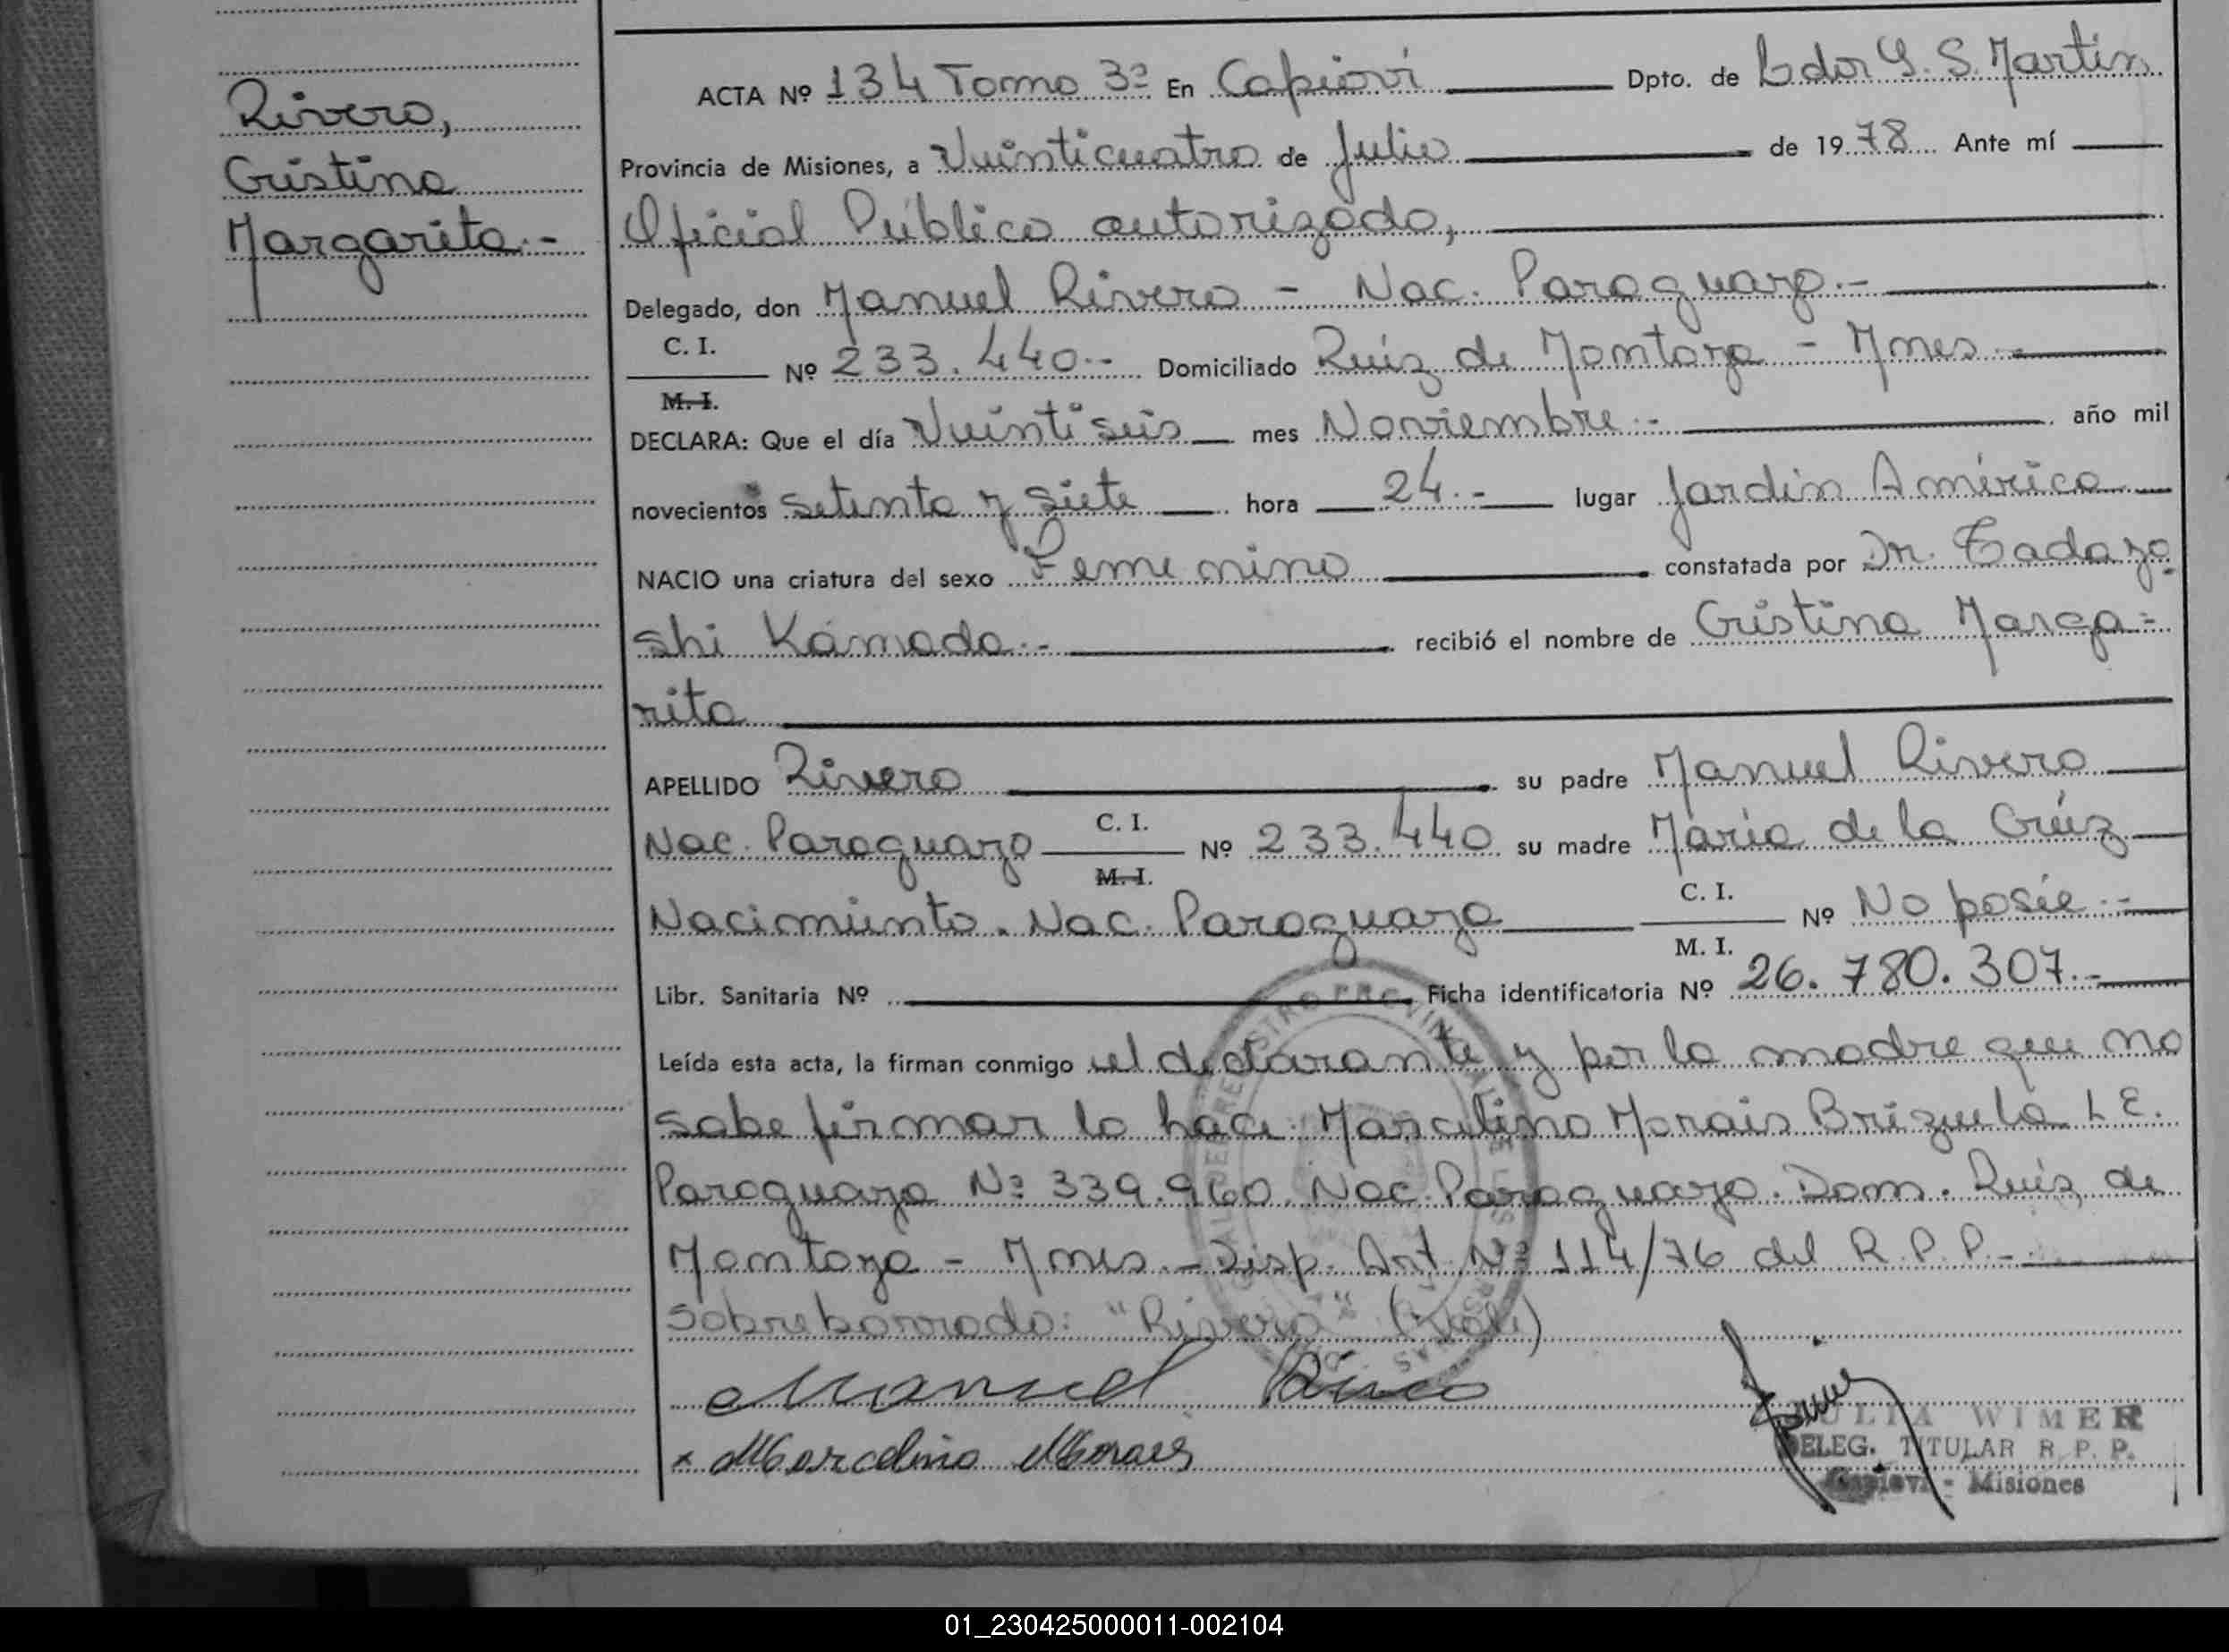 Rivero,
Cristina
Margarita.-
ACTA Nº 134 Tomo 3º En Capioví Dpto. de Ldor G. S. Martín
Provincia de Misiones, a Veinticuatro de Julio de 1978 Ante mí
Oficial Público autorizado,
Delegado, don Manuel Rivero - Nac. Paraguayo.-
C. I.
Nº 233.440.- Domiciliado Ruíz de Montoya - Mnes.-
M. I.
DECLARA: Que el día Veintiseis mes Noviembre.- año mil
novecientos setenta y siete hora 24.- lugar Jardín América
NACIO una criatura del sexo Femenino constatada por Dr. Tadayo
shi Kámada.- recibió el nombre de Cristina Marga-
rita
APELLIDO Rivero su padre Manuel Rivero
Nac. Paraguayo C. I. Nº 233.440 su madre María de la Crúz
M. I.
Nacimiento. Nac. Paraguaya C. I. Nº No posée.-
M. I.
Libr. Sanitaria Nº Ficha identificatoria Nº 26.780.307.-
Leída esta acta, la firman conmigo el declarante y por la madre que no
sabe firmar lo hace: Marcelino Morais Brizuela L E.
Paraguaya Nº 339.960. Nac. Paraguayo. Dom. Ruíz de
Montoya - Mnes. - Disp. Art. Nº 114/76 del R. P. P.-
Sobreborrado: "Rivero" (Vale)
Manuel Rivero
x Marcelino Morais
JULIA WIMER
DELEG. TITULAR R. P. P.
Capioví - Misiones
01_230425000011-002104